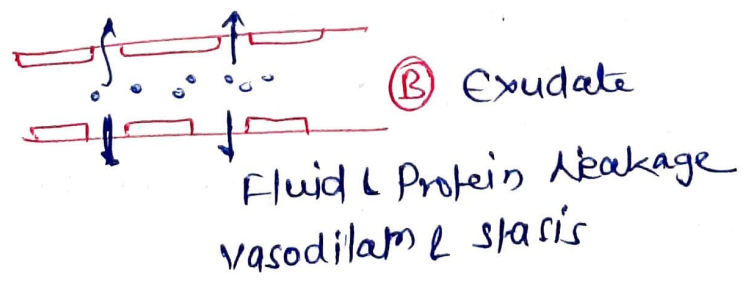 B Exudate
Fluid & Protein leakage
vasodilatn & stasis